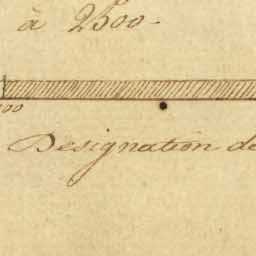 à 2500.
00
Designation de